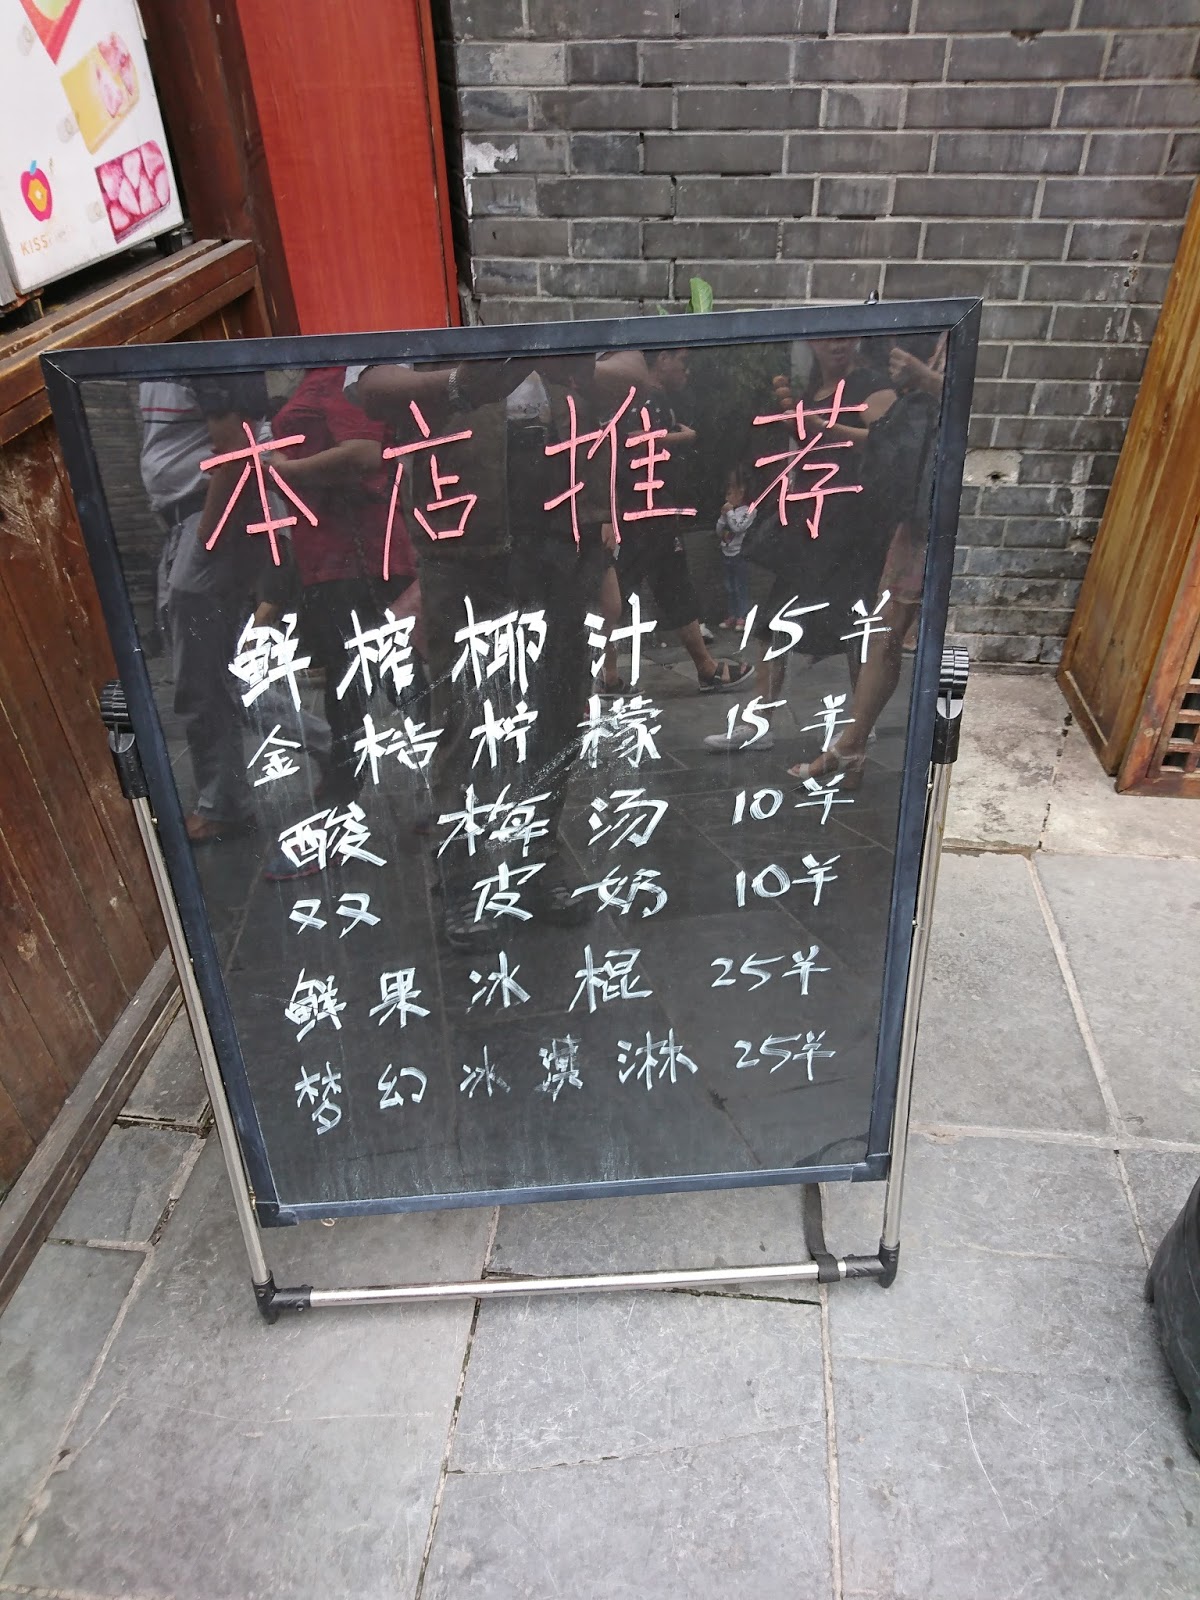 KISS
本店推荐
鲜榨椰汁 15羊
金桔柠檬 15羊
酸梅汤 10羊
双皮奶 10羊
鲜果冰棍 25羊
梦幻冰淇淋 25羊